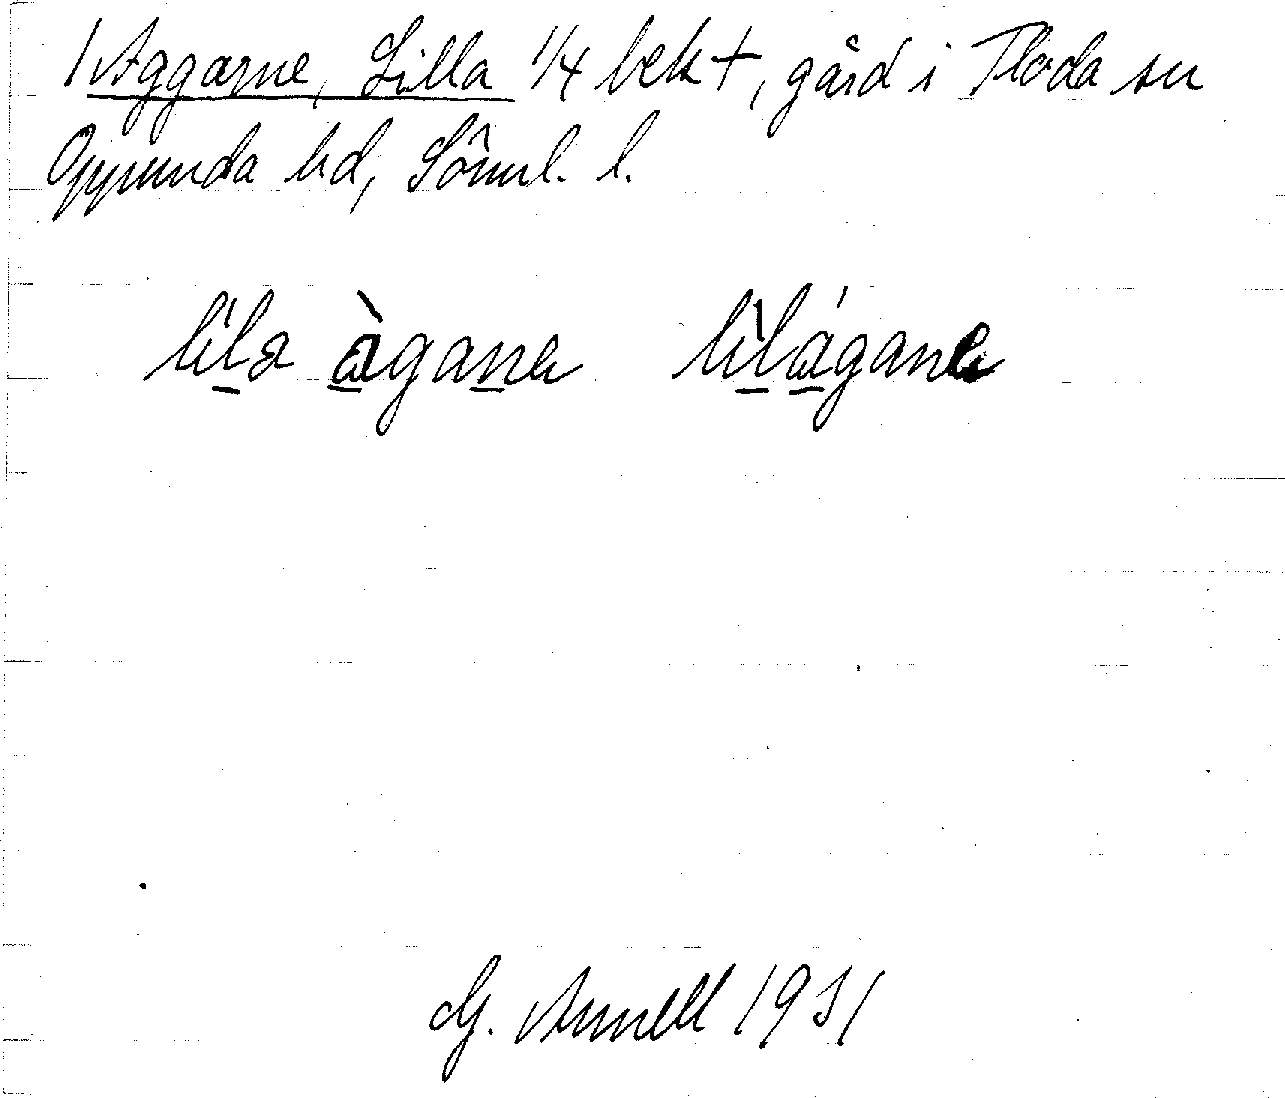 1 Aggarne, Lilla 1/4 bekt, gård i Floda sn
Oppunda hd, Söml. l.
lila àgana lìlágana
G. Annell 1931